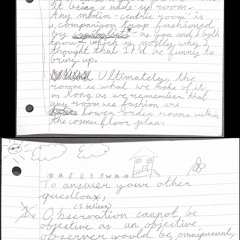 It being a made-up room.
Any media-centric "room" is
a comparison trap fashioned
by as you and I both
know, which is mostly why I
thought that it'd be funny to
bring up.
Ultimately, the
room is what we make of it,
long as we remember that
any rooms we fashion are
lower-order rooms within
the comen floor plan.
To answer your other
questions,
(I believe)
1. Observation cannot be
objective as an objective
observer would be, omnipresent,